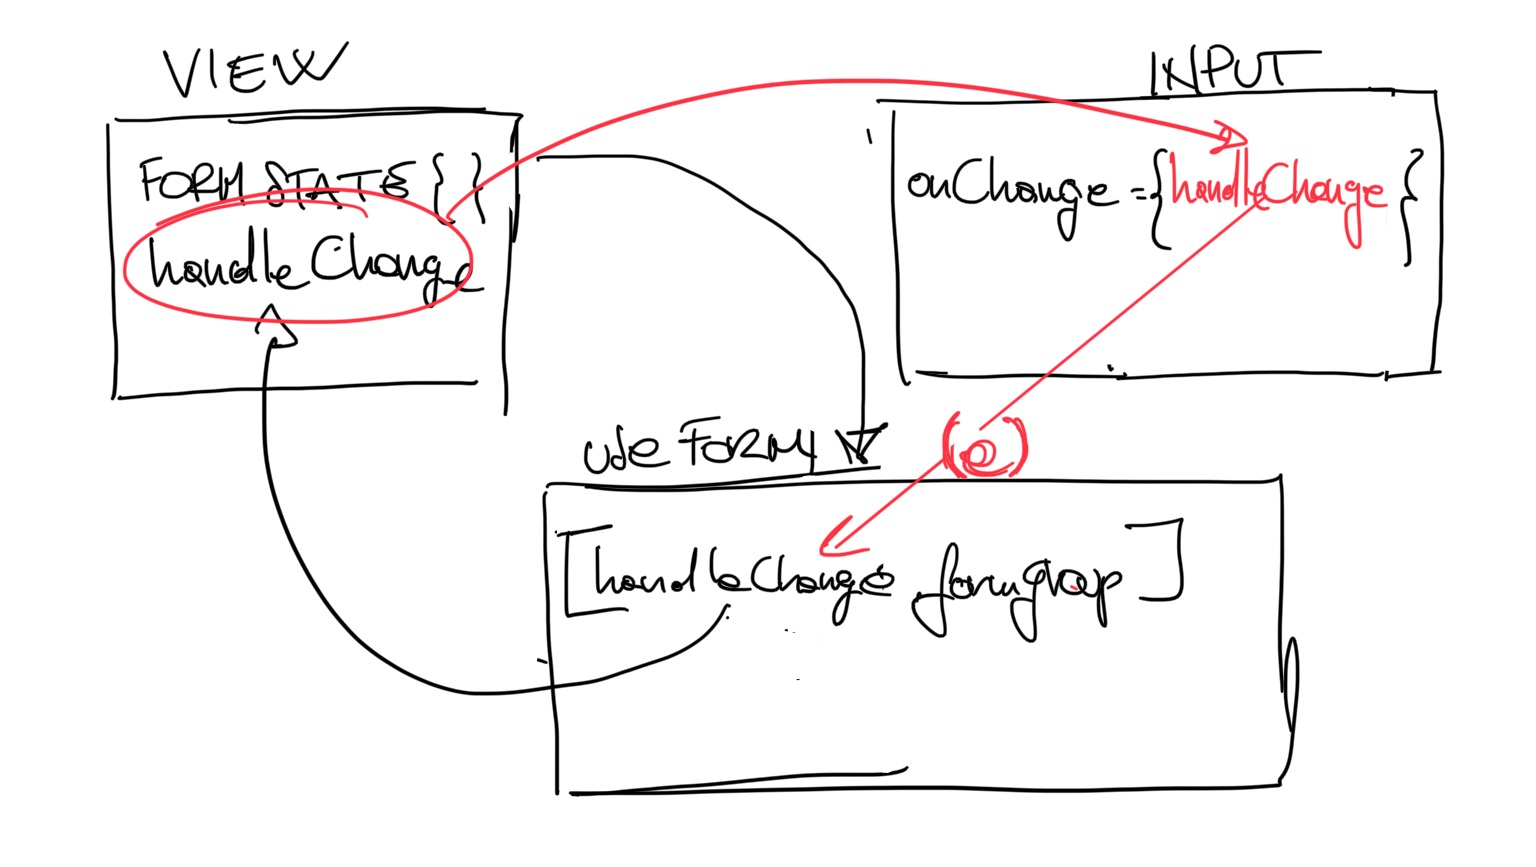 VIEW
FORM STATE { }
handleChange
INPUT
onChange = {handleChange}
useFORM
(e)
[handleChange formgroup]